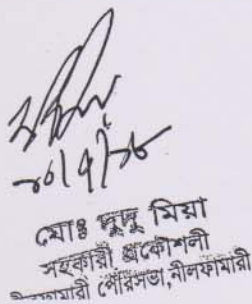 মোঃ দুদু মিয়া
সহকারী প্রকৌশলী
নীলফামারী পৌরসভা, নীলফামারী